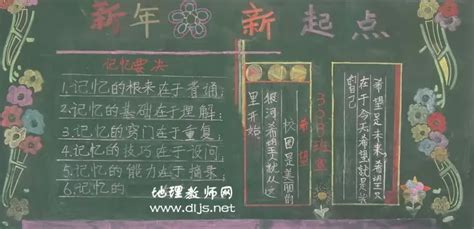 新年 新起点
记忆要决
1.记忆的根来在于普通;
2.记忆的基础在于理解;
3.记忆的窍门在于重复;
4.记忆的技巧在于设问;
5.记忆的能力在于摘录;
6.记忆的
希望是未来,希望又
在于今天,希望就是
自己
308班
希望
校园是美丽的
银河,希望就从这
里开始.
地理教师网
www.dljs.net